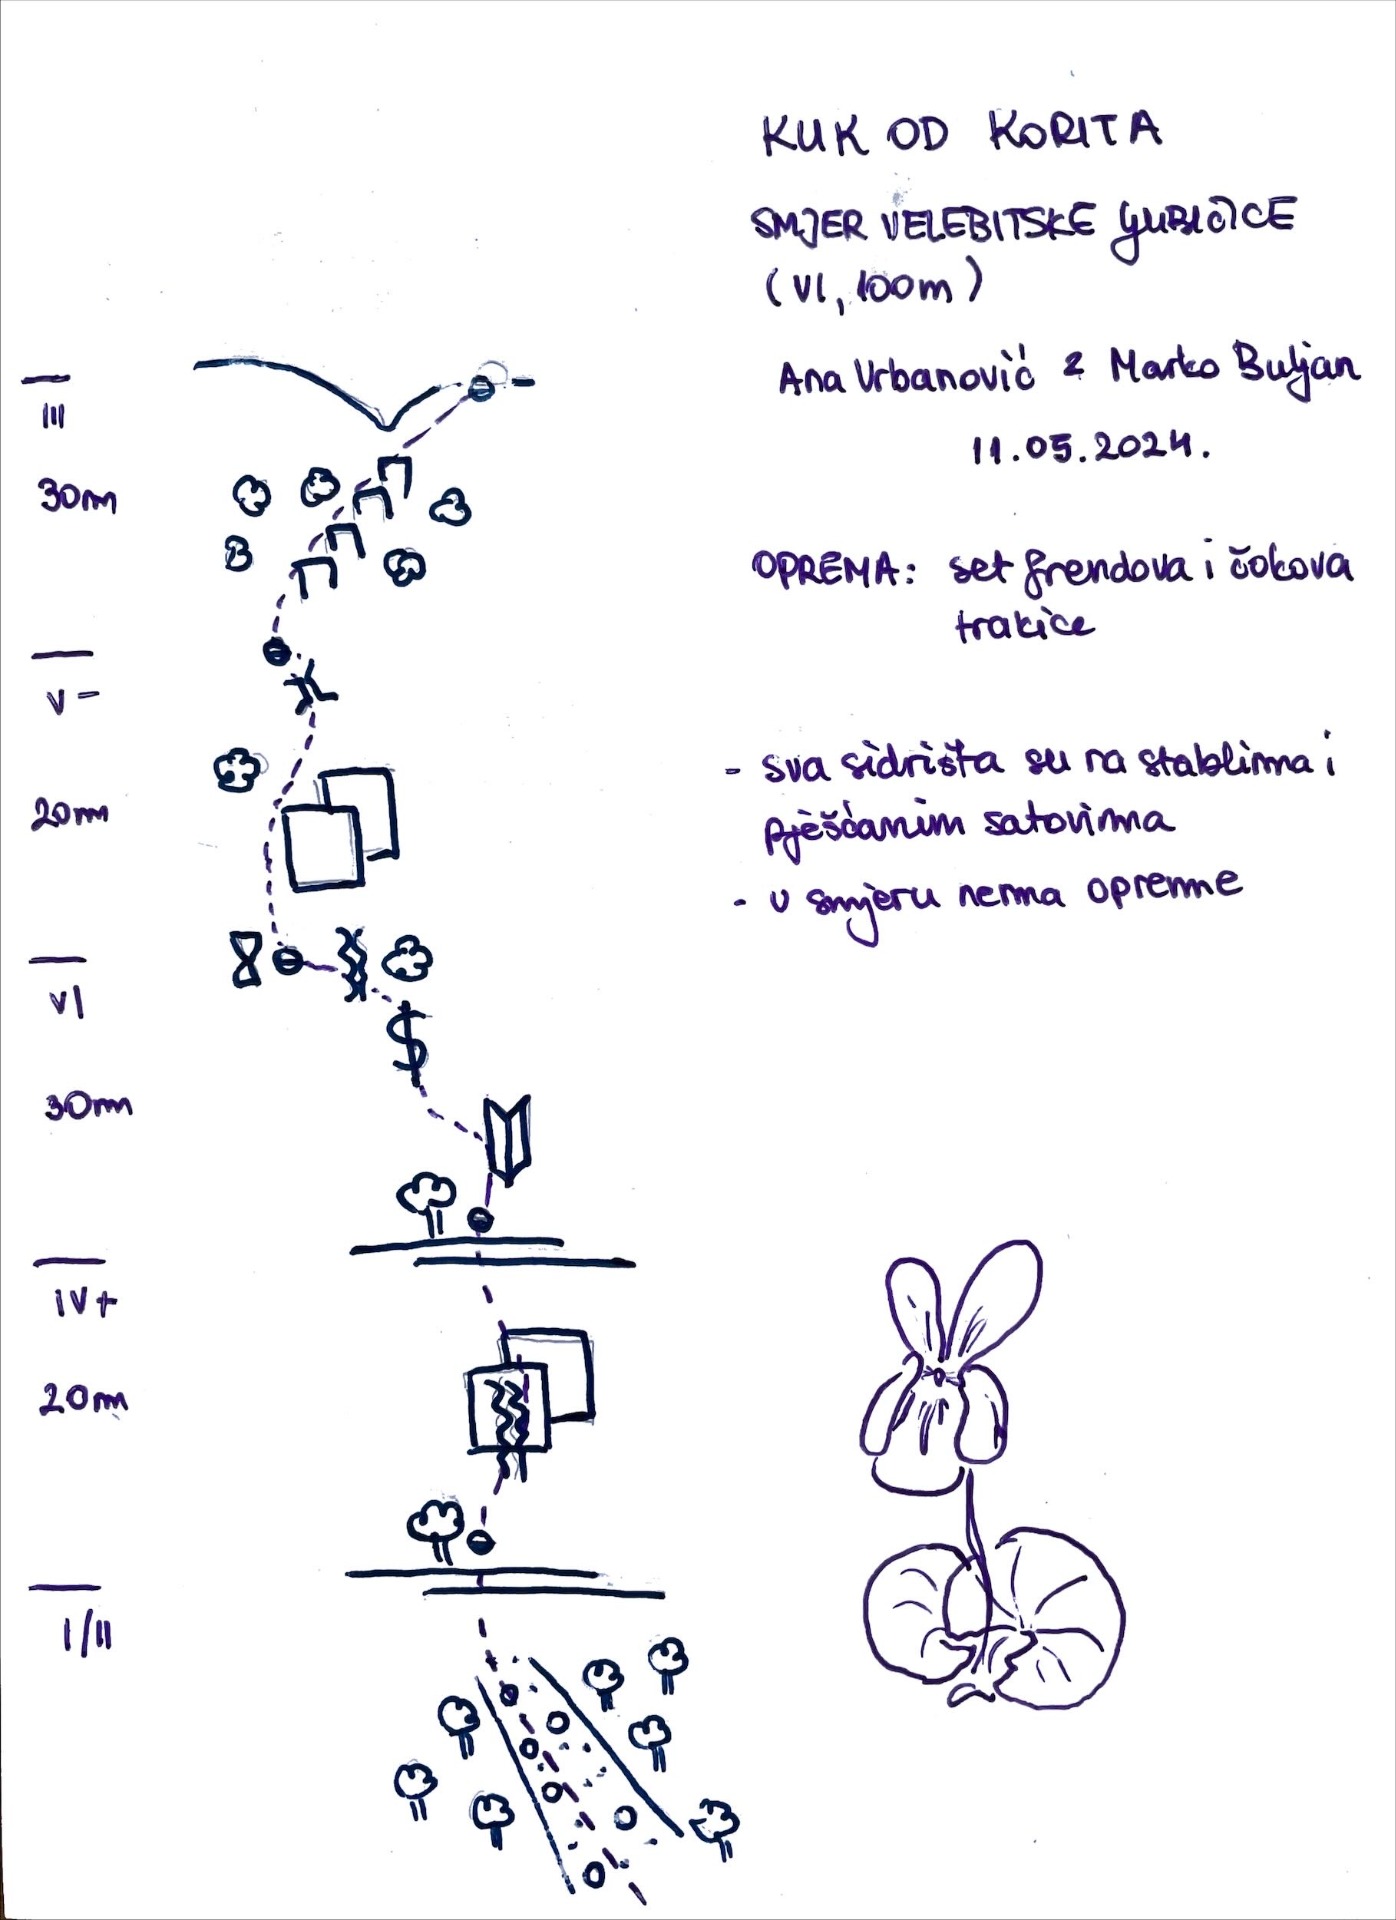 KUK OD KORITA
SMJER VELEBITSKE GUBIČICE
(VI, 100m)
Ana Vrbanović & Marko Buljan
11.05.2024.
OPREMA: set frendova i čokova
trakice
- sva sidrišta su na stablima i
pješčanim satovima
- u smjeru nema opreme
III
30m
V-
20m
VI
30m
IV+
20m
I/II